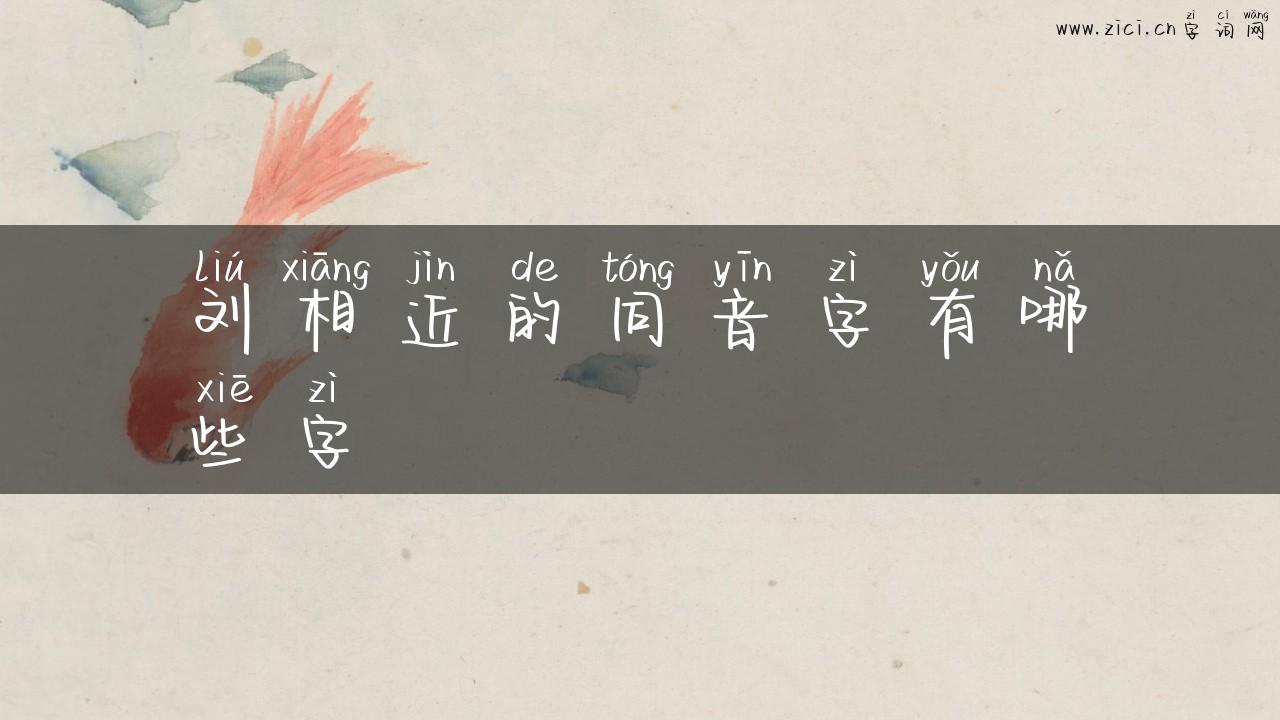 zì cí wǎng
www.zici.cn 字词网
liú xiāng jìn de tóng yīn zì yǒu nǎ
刘相近的同音字有哪
xiē zì
些字